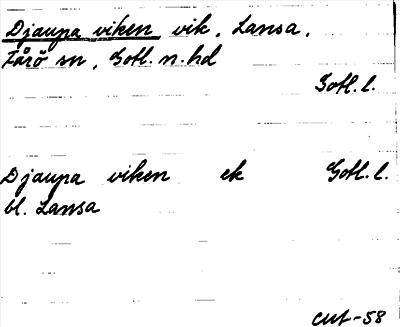 Djaupa viken vik, Lansa,
Fårö sn, Gotl. n. hd
Gotl. l.
Djaupa viken ek Gotl. l.
bl. Lansa
CMt-58